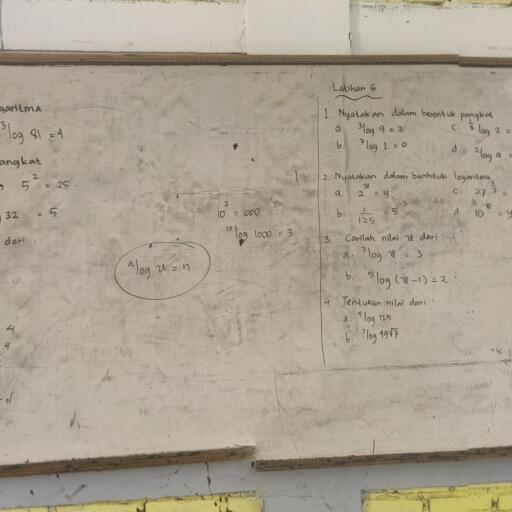 garitma
³log 81 = 4
angkat
5² = 25
32 = 5
dari :
4
4
10³ = 1000
¹⁰log 1000 = 3
ᵃlog x = n
Latihan 6
1. Nyatakan dalam bentuk pangkat
a. ³log 9 = 2
c. log 2 =
b. ⁷log 1 = 0
d. ²log a =
2. Nyatakan dalam bentuk logaritma
a. 2ˣ = y
c. 27
b. 1/125 = 5⁻³
d. 10ˣ = y
3. Carilah nilai x dari :
a. ⁷log x = 3
b. ⁵log (x-1) = 2
4. Tentukan nilai dari :
a. ⁵log 125
b. ⁷log 49√7